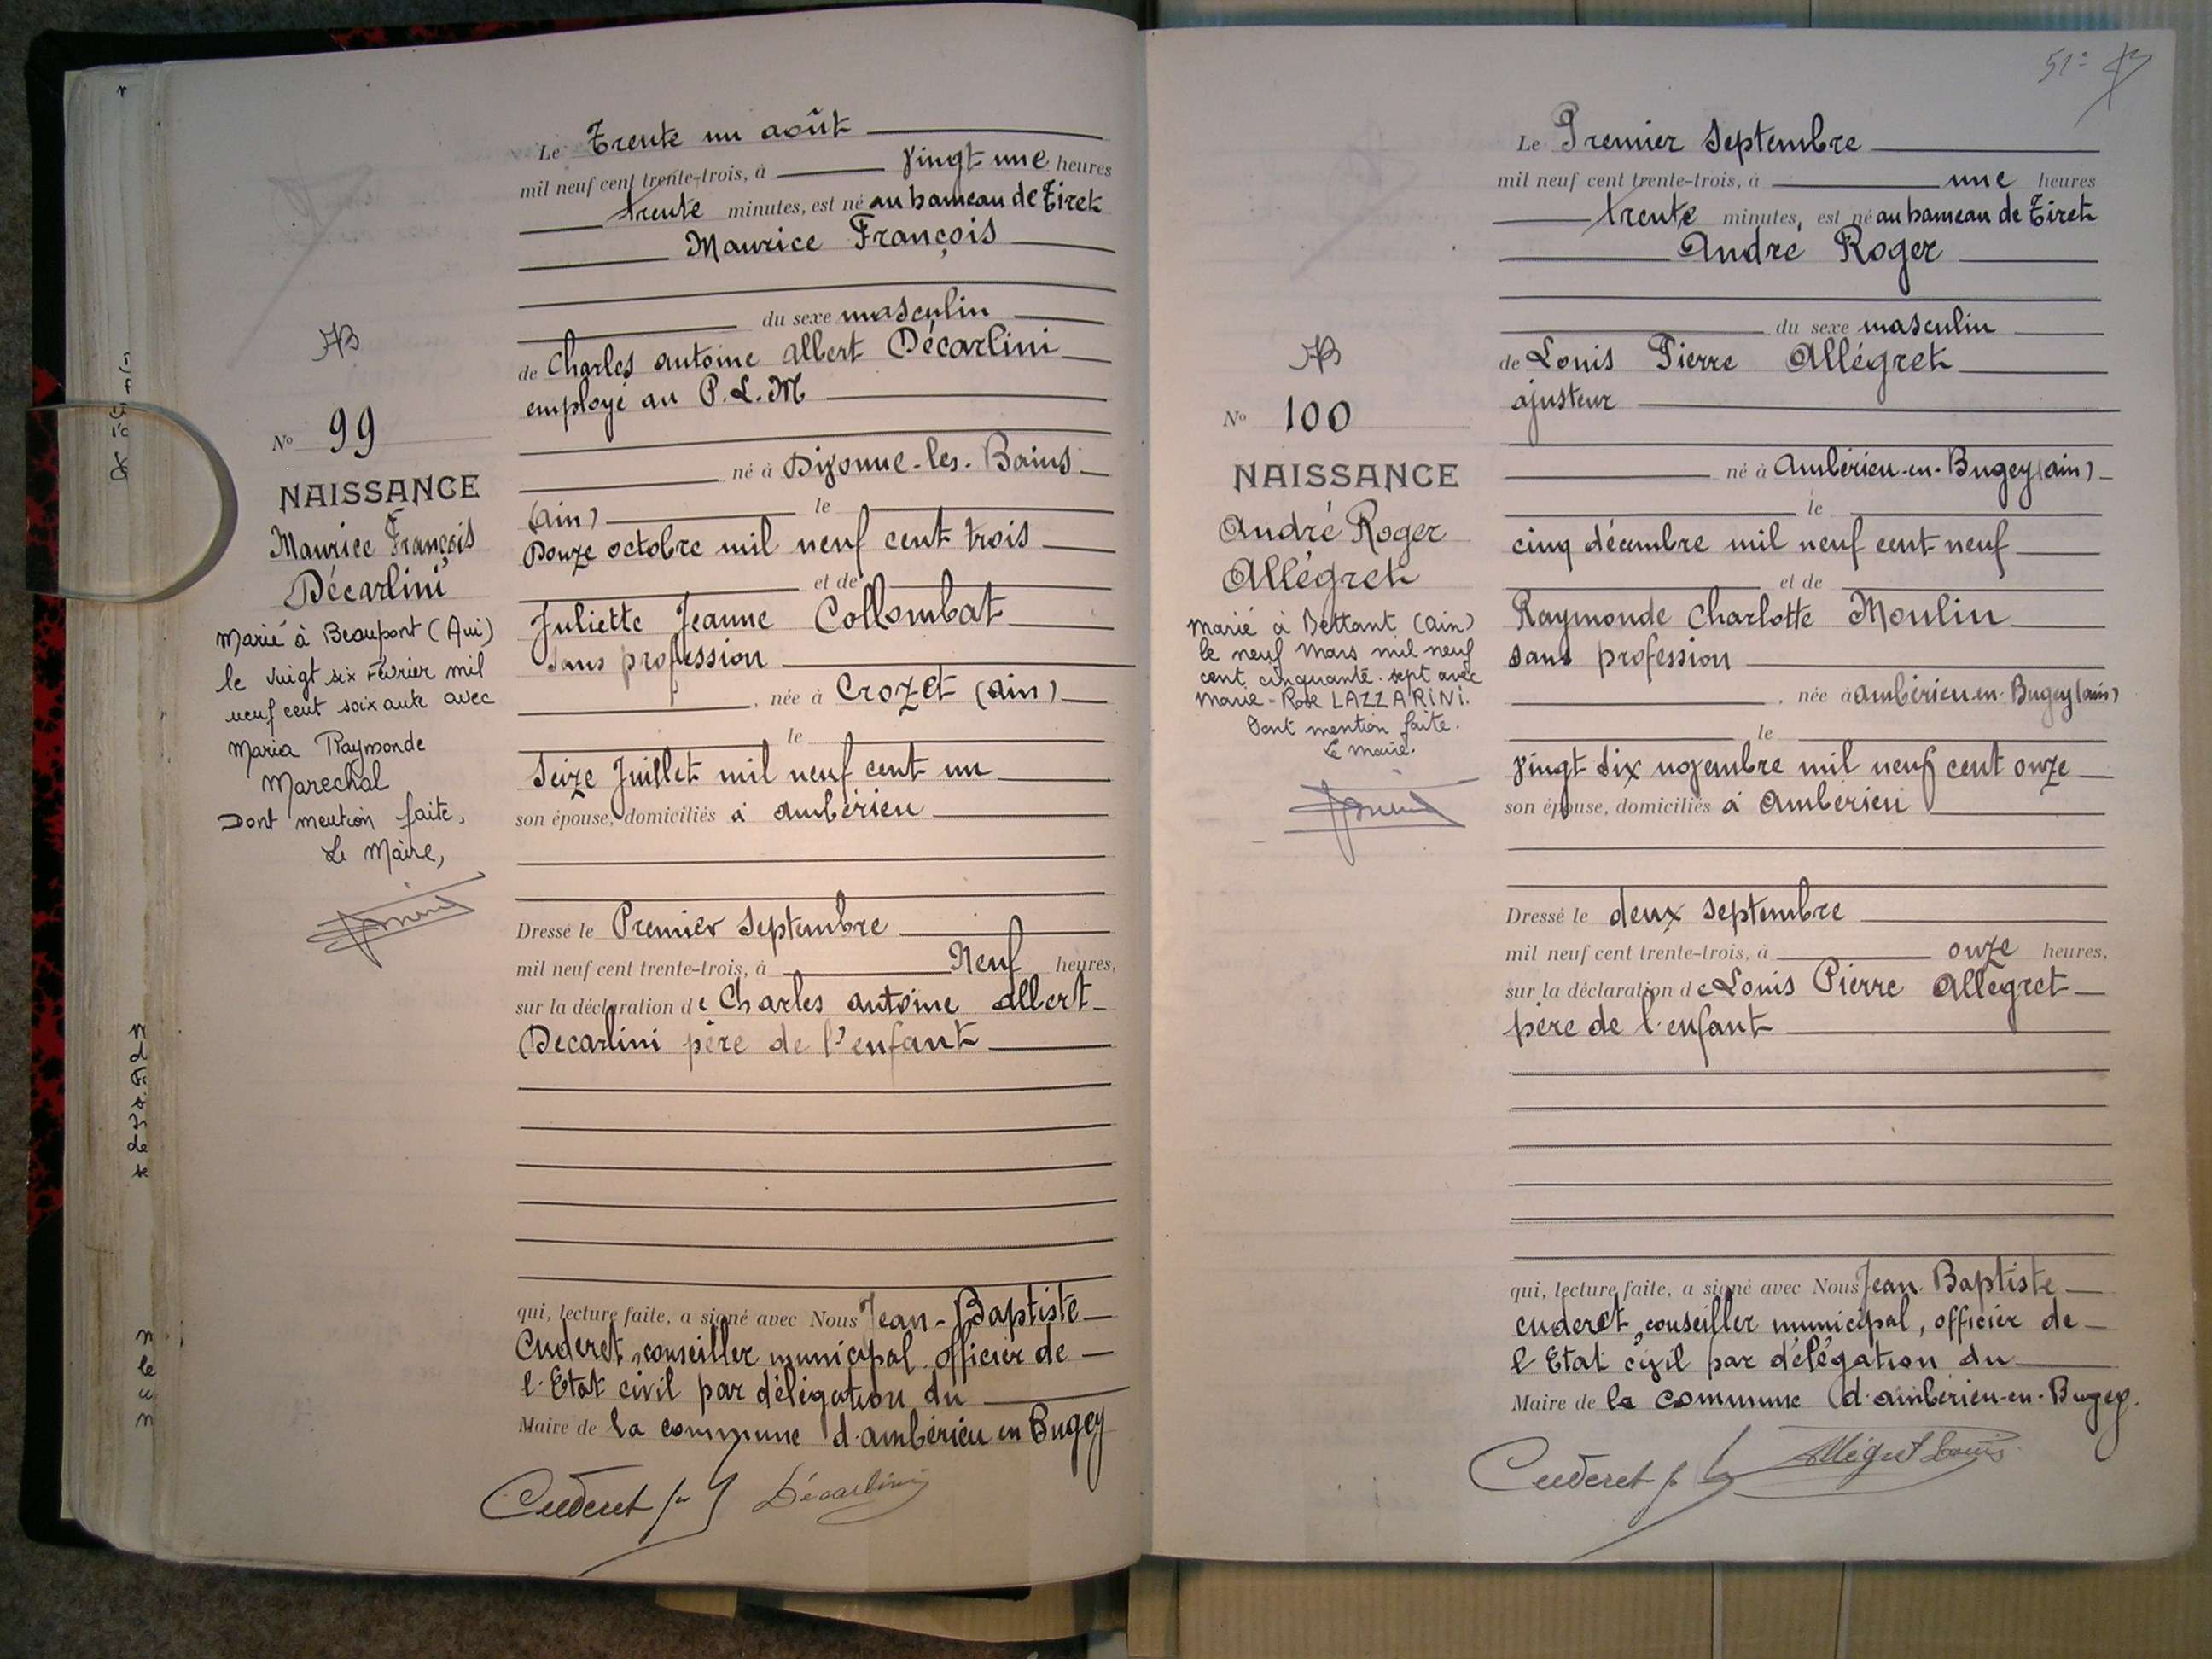 AB
N° 99
NAISSANCE
Maurice François
Décarlini
Marié à Beaupont (Ain)
le vingt six Février mil
neuf cent soixante avec
Maria Raymonde
Marechal
Dont mention faite,
Le Maire,
Le Trente un août
mil neuf cent trente-trois, à vingt une heures
trente minutes, est né au hameau de Tiret
Maurice François
du sexe masculin
de Charles antoine Albert Décarlini
employé au P.L.M
né à Divonne-les-Bains
(ain) le
Douze octobre mil neuf cent trois
et de
Juliette Jeanne Collombat
sans profession
, née à Crozet (ain)
le
Seize Juillet mil neuf cent un
son épouse, domiciliés à ambérieu
Dressé le Premier Septembre
mil neuf cent trente-trois, à Neuf heures,
sur la déclaration de Charles antoine albert
Decarlini père de l'enfant
qui, lecture faite, a signé avec Nous Jean-Baptiste
Cuderet, conseiller municipal officier de
l'Etat civil par délégation du
Maire de la commune d'ambérieu en Bugey
Cuderet Décarlini
51e
AB
N° 100
NAISSANCE
André Roger
Allégret
Marié à Bettant (ain)
le neuf Mars mil neuf
cent cinquante-sept avec
Marie-Rose LAZZARINI.
Dont mention faite.
Le Maire.
Le Premier Septembre
mil neuf cent trente-trois, à une heures
trente minutes, est né au hameau de Tiret
André Roger
du sexe masculin
de Louis Pierre Allégret
ajusteur
né à Ambérieu-en-Bugey (ain)
le
cinq décembre mil neuf cent neuf
et de
Raymonde Charlotte Moulin
sans profession
, née à ambérieu-en-Bugey (ain)
le
vingt six novembre mil neuf cent onze
son épouse, domiciliés à Ambérieu
Dressé le deux Septembre
mil neuf cent trente-trois, à onze heures,
sur la déclaration de Louis Pierre Allégret
père de l'enfant
qui, lecture faite, a signé avec Nous Jean Baptiste
Cuderet, conseiller municipal, officier de
l'Etat civil par délégation du
Maire de la commune d'ambérieu-en-Bugey.
Cuderet Allégret Louis